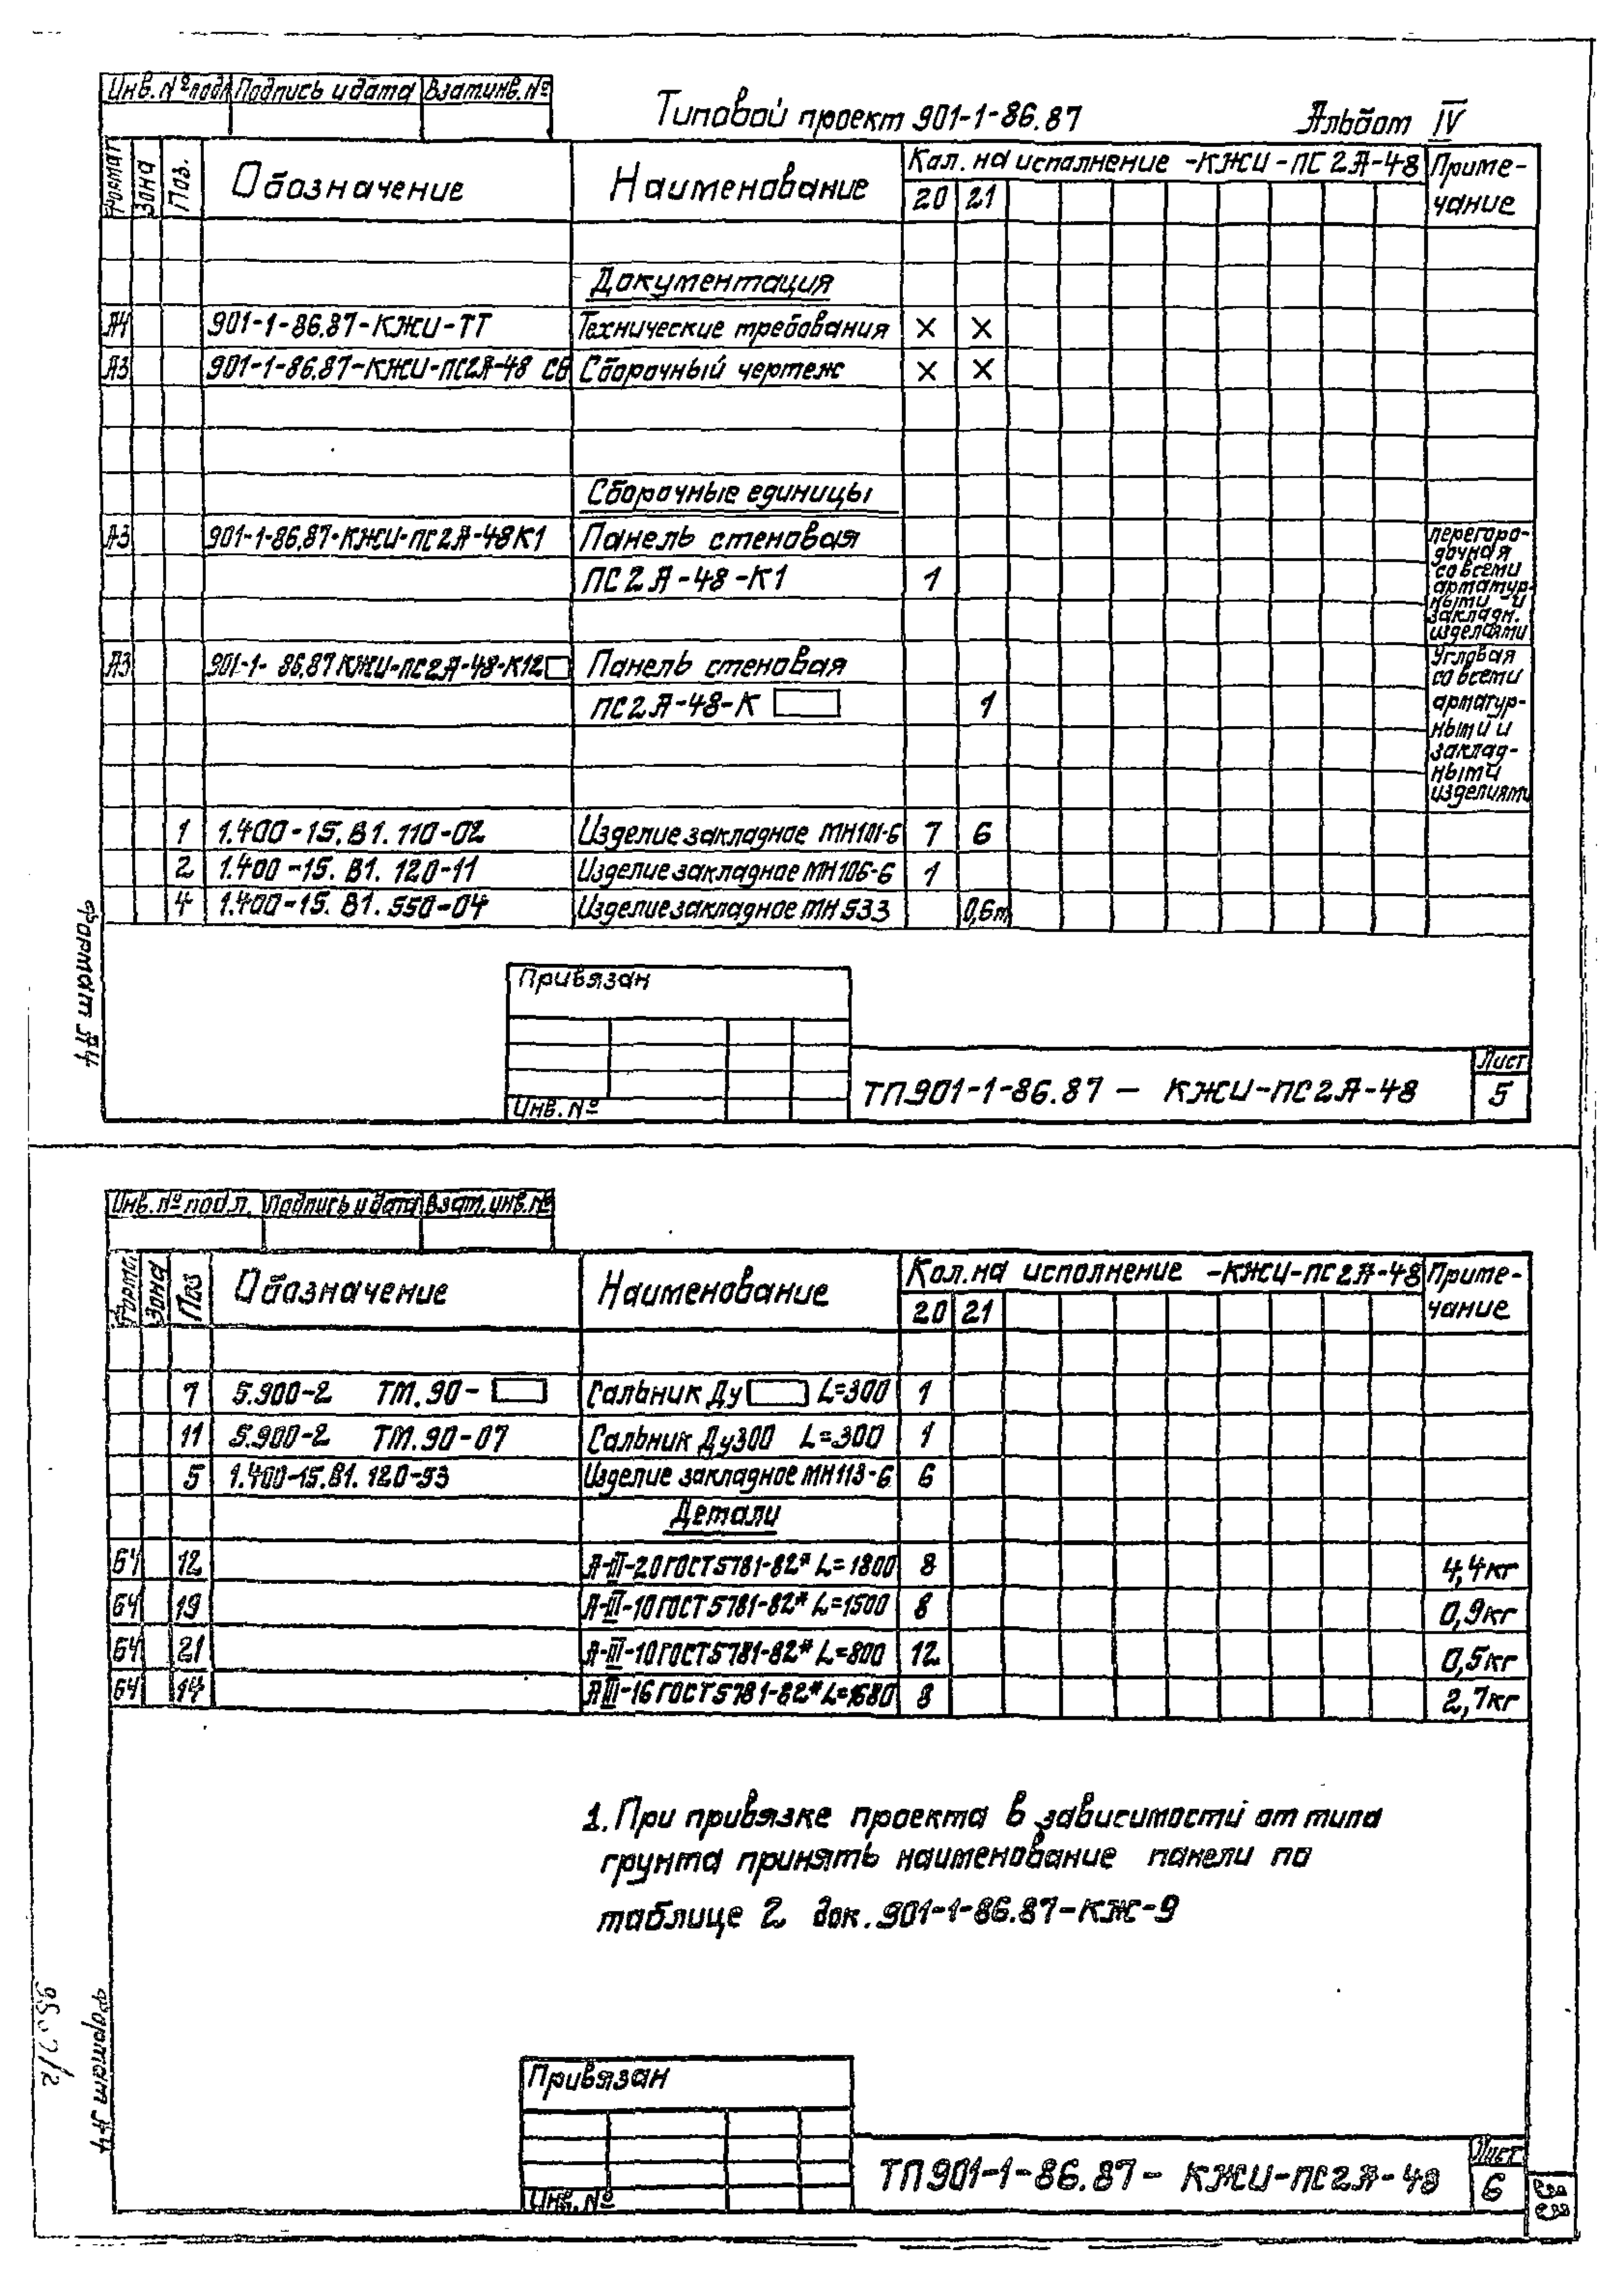 Инв. № подл Подпись и дата Взам.инв. №
Типовой проект 901-1-86.87 Альбом IV
Формат Зона Поз. Обозначение Наименование Кол. на исполнение -КЖИ-ПС2А-48 Приме-
20 21 чание
Документация
А4 901-1-86.87-КЖИ-ТТ Технические требования × ×
А3 901-1-86.87-КЖИ-ПС2А-48 СБ Сборочный чертеж × ×
Сборочные единицы
А3 901-1-86.87-КЖИ-ПС2А-48К1 Панель стеновая перегоро-
дочная
ПС2А-48-К1 1 со всеми
арматур-
ными и
закладн.
изделиями
А3 901-1-86.87 КЖИ-ПС2А-48-К12 Панель стеновая Угловая
со всеми
ПС2А-48-К 1 арматур-
ными и
заклад-
ными
изделиями
1 1.400-15.В1.110-02 Изделие закладное МН101-6 7 6
2 1.400-15.В1.120-11 Изделие закладное МН106-6 1
4 1.400-15.В1.550-04 Изделие закладное МН533 0,6м
Формат А4
Привязан
Инв. №
ТП901-1-86.87- КЖИ-ПС2А-48
Лист
5
Инв. № подл. Подпись и дата Взам. инв. №
Формат Зона Поз Обозначение Наименование Кол. на исполнение -КЖИ-ПС2А-48 Приме-
20 21 чание
7 5.900-2 ТМ.90- Сальник Ду L=300 1
11 5.900-2 ТМ.90-07 Сальник Ду300 L=300 1
5 1.400-15.В1.120-53 Изделие закладное МН113-6 6
Детали
БЧ 12 А-III-20 ГОСТ 5781-82* L=1800 8 4,4кг
БЧ 19 А-III-10 ГОСТ 5781-82* L=1500 8 0,9кг
БЧ 21 А-III-10 ГОСТ 5781-82* L=800 12 0,5кг
БЧ 14 АIII-16 ГОСТ 5781-82* L=1680 8 2,7кг
1. При привязке проекта в зависимости от типа
грунта принять наименование панели по
таблице 2 док. 901-1-86.87-КЖ-9
Формат А4
Привязан
Инв. №
ТП901-1-86.87- КЖИ-ПС2А-48
Лист
6